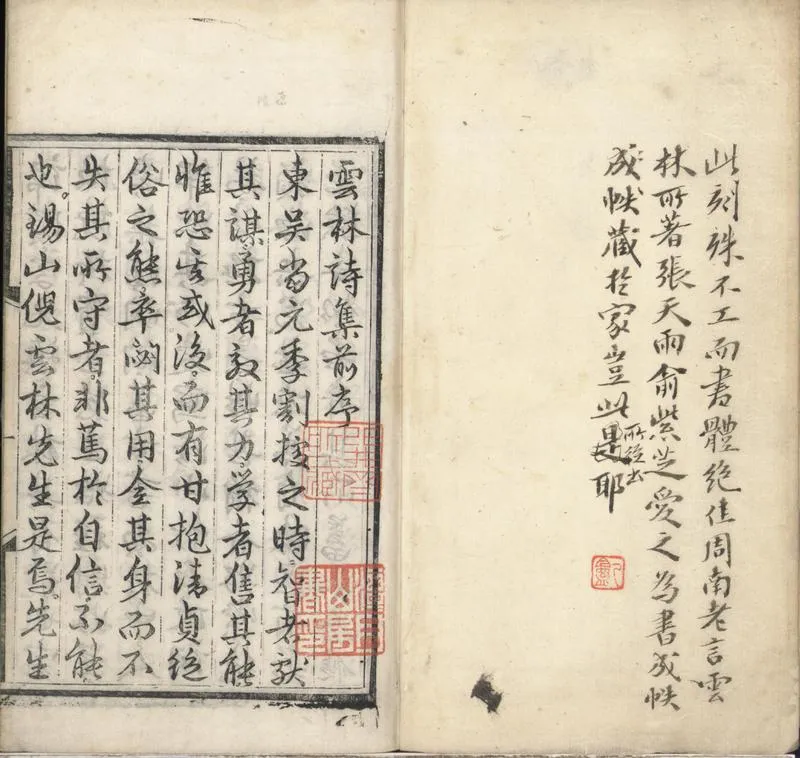 此刻殊不工而書體絕佳周南老言雲
林所著張天雨俞紫芝愛之為書成帙
成帙藏於家豈此所從出耶
雲林詩集前序
東吳當元季割據之時智者獻
其謀勇者效其力學者售其能
惟恐或後而有甘抱清貞絕
俗之態卒閟其用全其身而不
失其所守者非篤於自信不能
也錫山倪雲林先生是焉先生